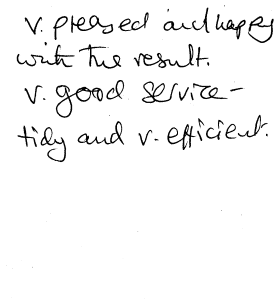 v. pleased and happy
with the result.
v. good service -
tidy and v. efficient.